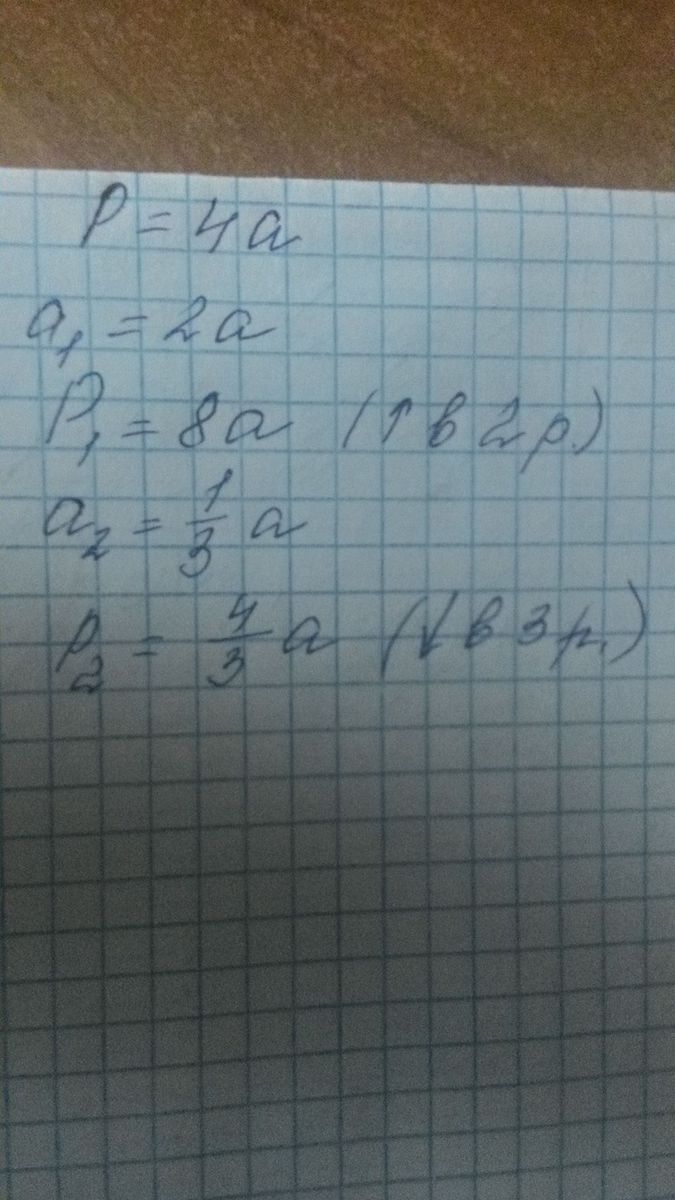 P = 4a
a₁ = 2a
P₁ = 8a (↑ в 2 р.)
a₂ = 1/3 a
P₂ = 4/3 a (↓ в 3 р.)